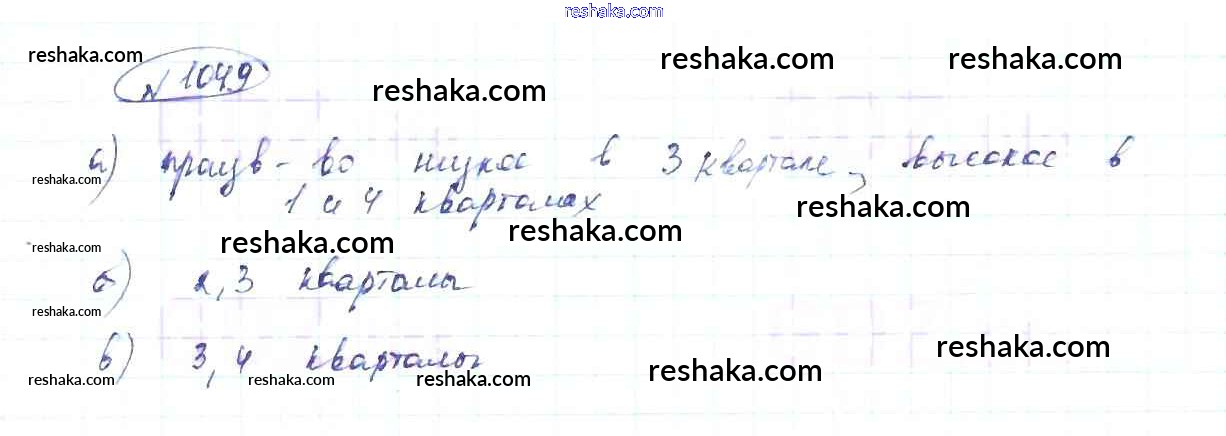 reshaka.com
reshaka.com reshaka.com reshaka.com
№ 1049 reshaka.com
а) произв-во низкое в 3 квартале, высокое в
reshaka.com 1 и 4 кварталах reshaka.com
reshaka.com reshaka.com reshaka.com
б) 2,3 кварталы
reshaka.com
в) 3,4 кварталы reshaka.com
reshaka.com reshaka.com reshaka.com reshaka.com